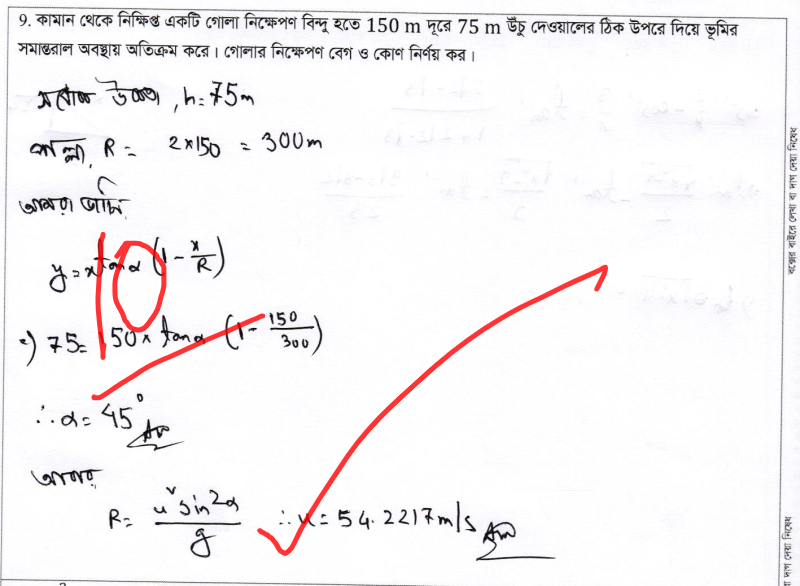 9. কামান থেকে নিক্ষিপ্ত একটি গোলা নিক্ষেপণ বিন্দু হতে 150 m দূরে 75 m উঁচু দেওয়ালের ঠিক উপরে দিয়ে ভূমির
সমান্তরাল অবস্থায় অতিক্রম করে। গোলার নিক্ষেপণ বেগ ও কোণ নির্ণয় কর।
সর্বোচ্চ উচ্চতা, h=75m
পাল্লা, R = 2×150 = 300m
আমরা জানি
y = x tanα (1 - x/R)
⇒) 75 = 150 × tanα (1 - 150/300)
∴ α = 45° Ans
আবার,
R = u² sin2α / g ∴ u = 54.2217 m/s Ans
বক্সের বাইরে লেখা বা দাগ দেয়া নিষেধ
বা দাগ দেয়া নিষেধ